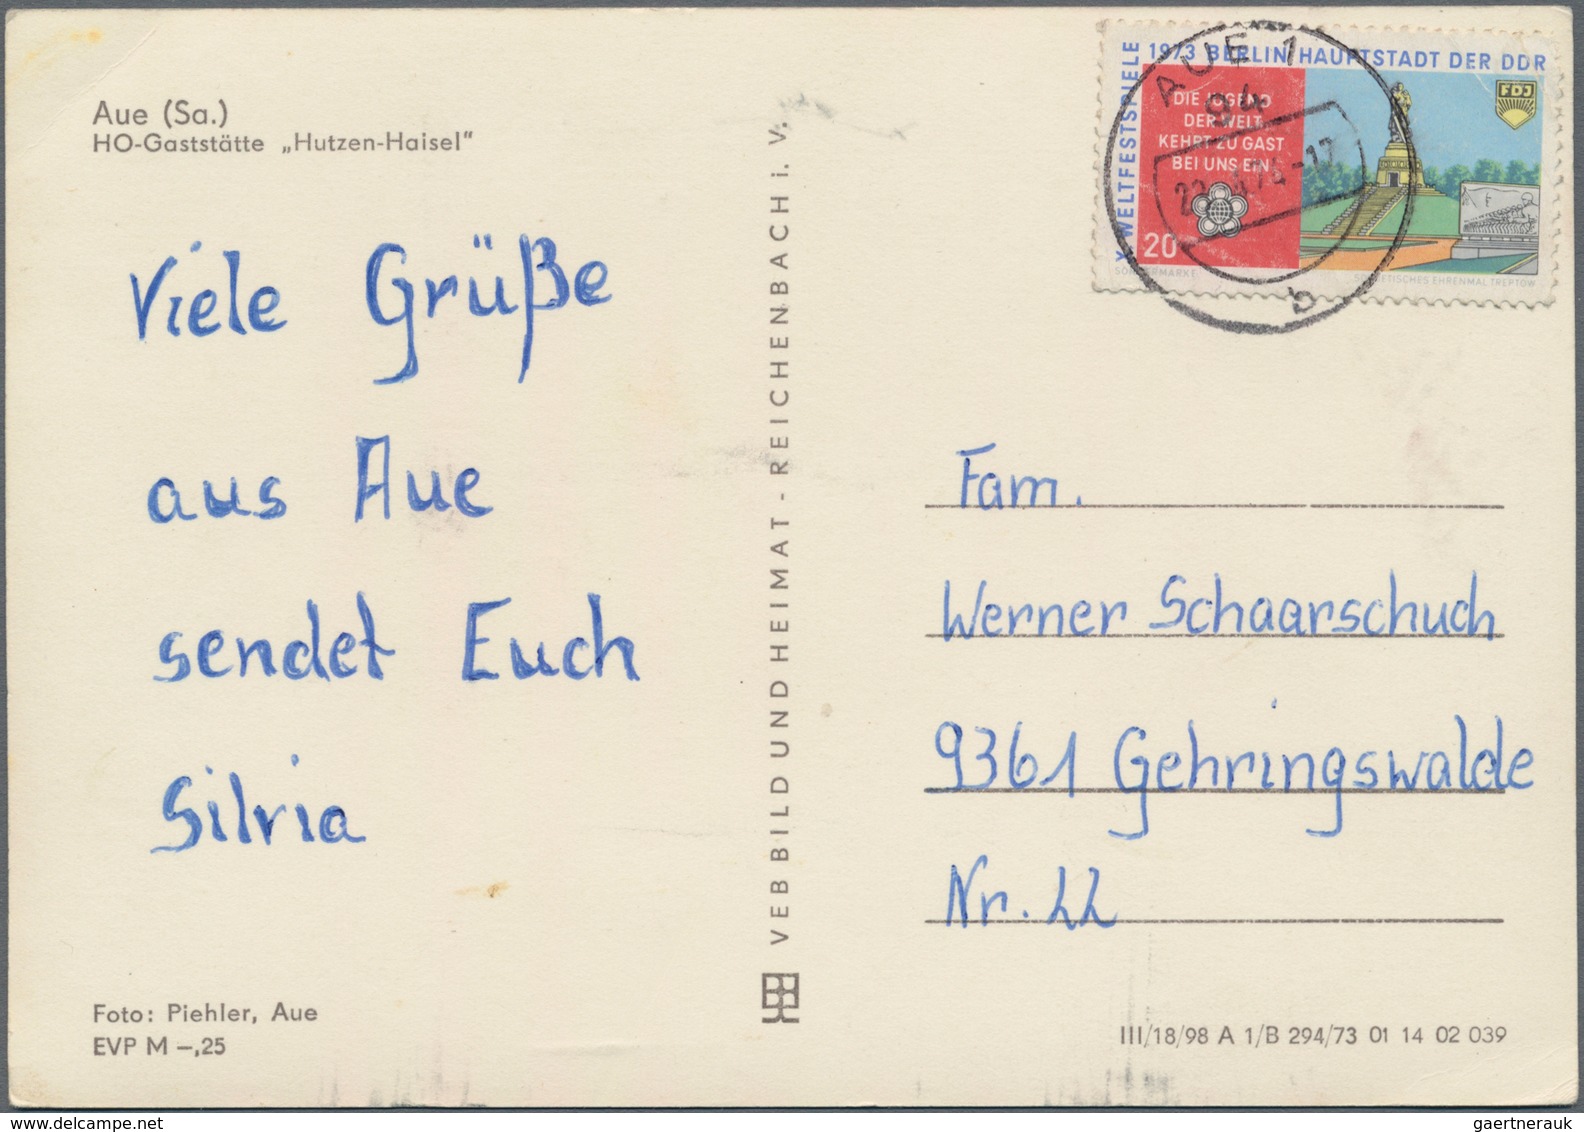 Aue (Sa.)
HO-Gaststätte „Hutzen-Haisel"
Viele Grüße
aus Aue
sendet Euch
Silvia
Foto: Piehler, Aue
EVP M –,25
VEB BILD UND HEIMAT - REICHENBACH i. V.
X. WELTFESTSPIELE 1973 BERLIN HAUPTSTADT DER DDR
DIE JUGEND
DER WELT
KEHRT ZU GAST
BEI UNS EIN
20
FDJ
SONDERMARKE
SOWJETISCHES EHRENMAL TREPTOW
AUE 1
94
b
Fam.
Werner Schaarschuch
9361 Gehringswalde
Nr. 22
III/18/98 A 1/B 294/73 01 14 02 039
gaertnerauk @ delcampe.net